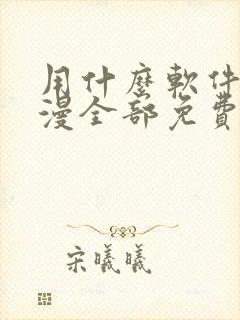 用什麼軟件
漫全部免費
宋曦曦